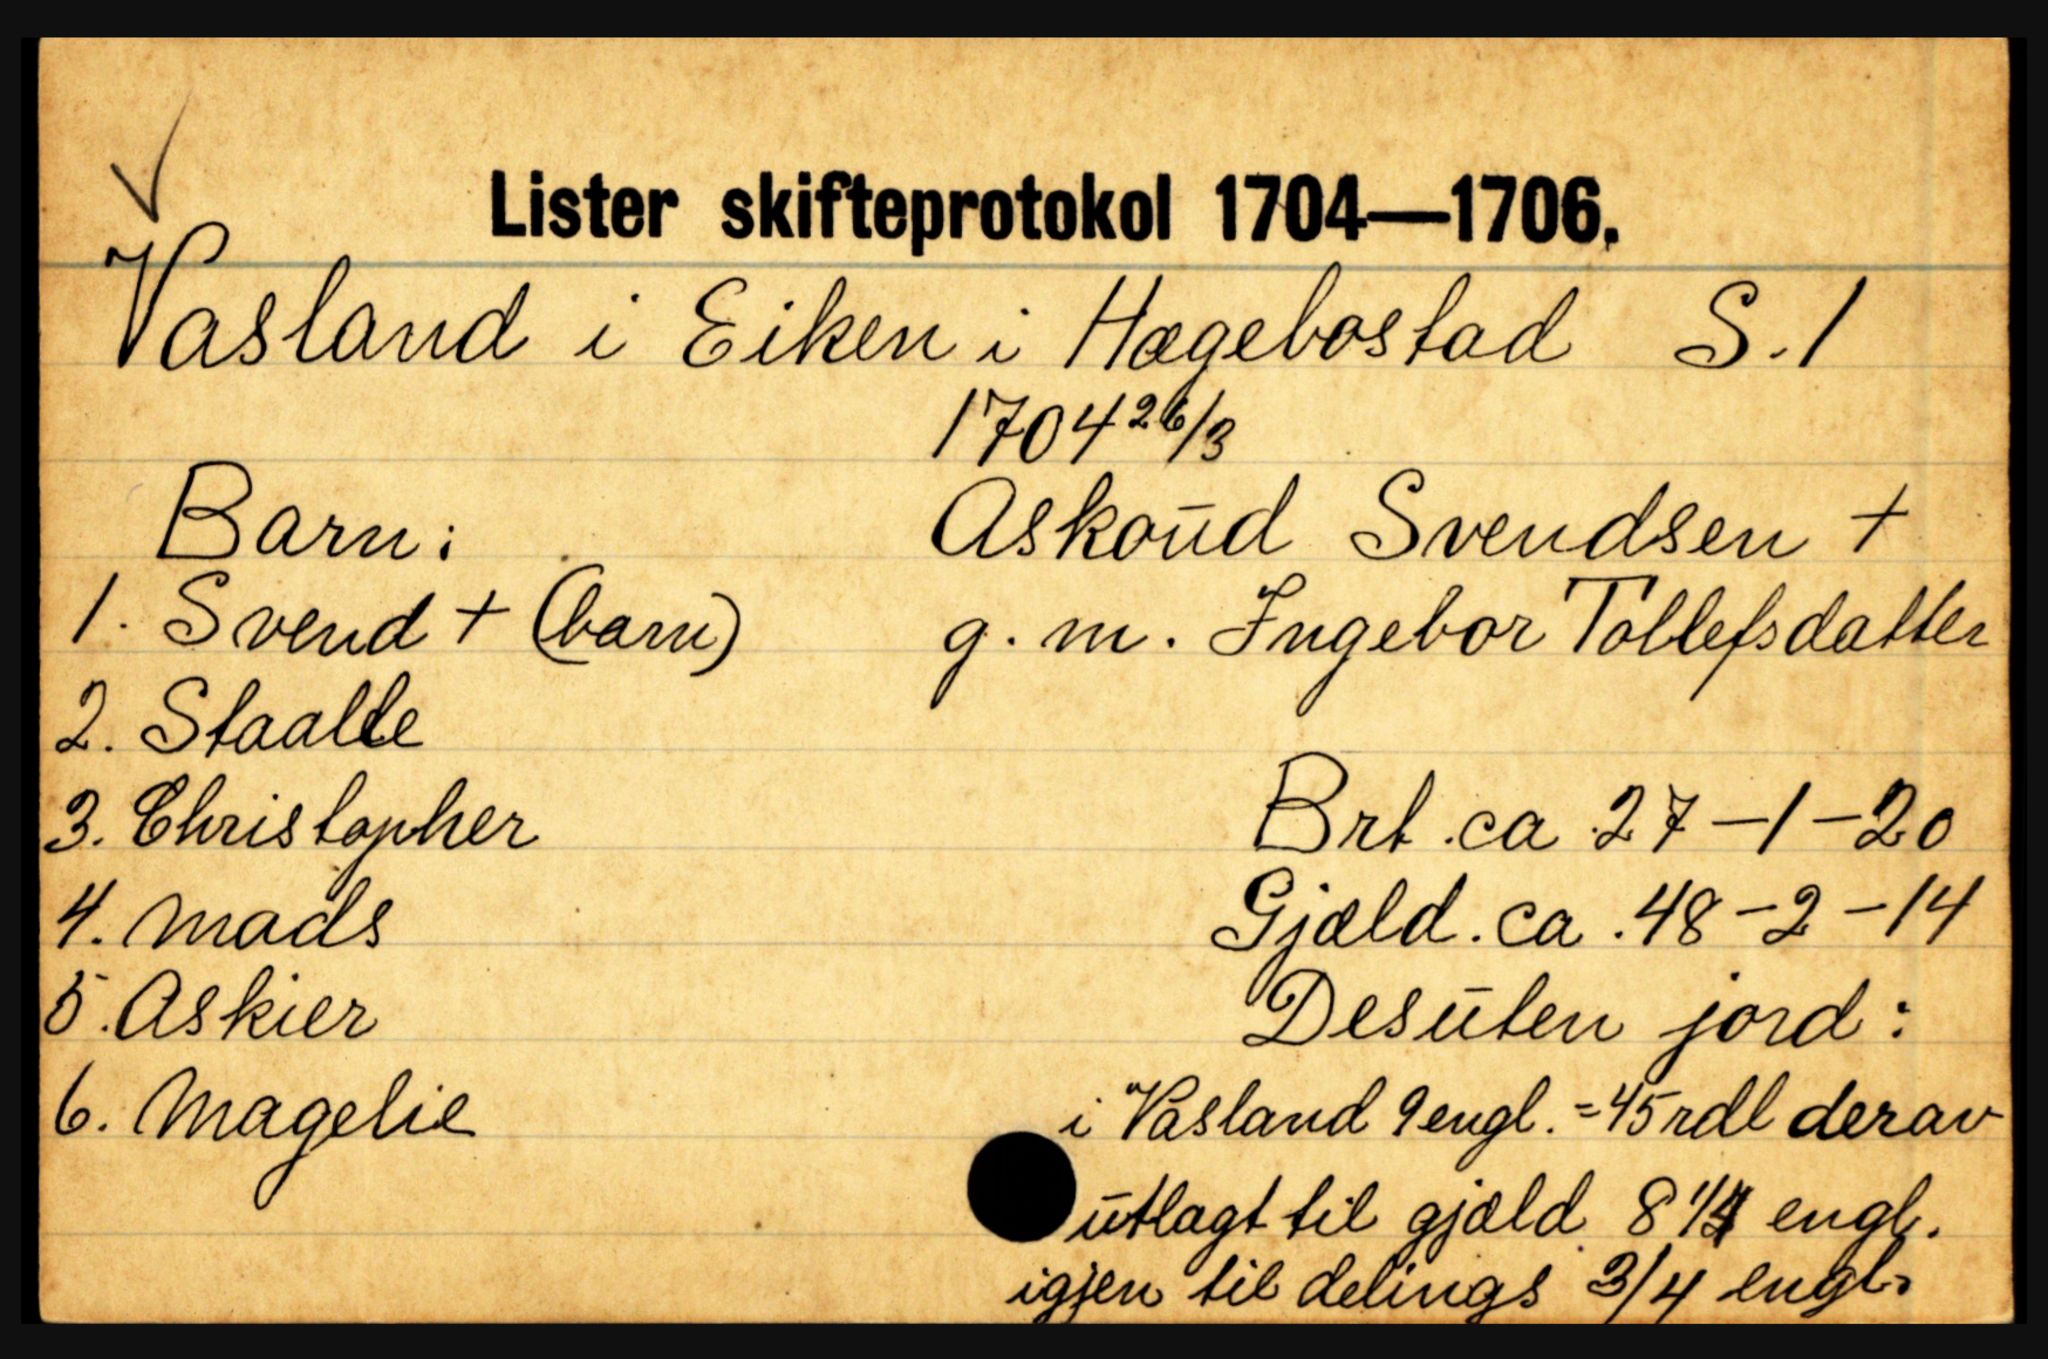 Lister skifteprotokol 1704—1706.
Vasland i Eiken i Hægebostad S. 1
1704 26/3
Barn:
1. Svend + (barn)
2. Staalle
3. Christopher
4. Mads
5. Askier
6. Magelie
Askoud Svendsen +
g. m. Ingebor Tollefsdatter
Brt. ca. 27-1-20
Gjæld. ca. 48-2-14
Desuten jord:
i Vasland 9 engl. = 45 rdl derav
utlagt til gjæld 8 1/4 engl.
igjen til delings 3/4 engl.